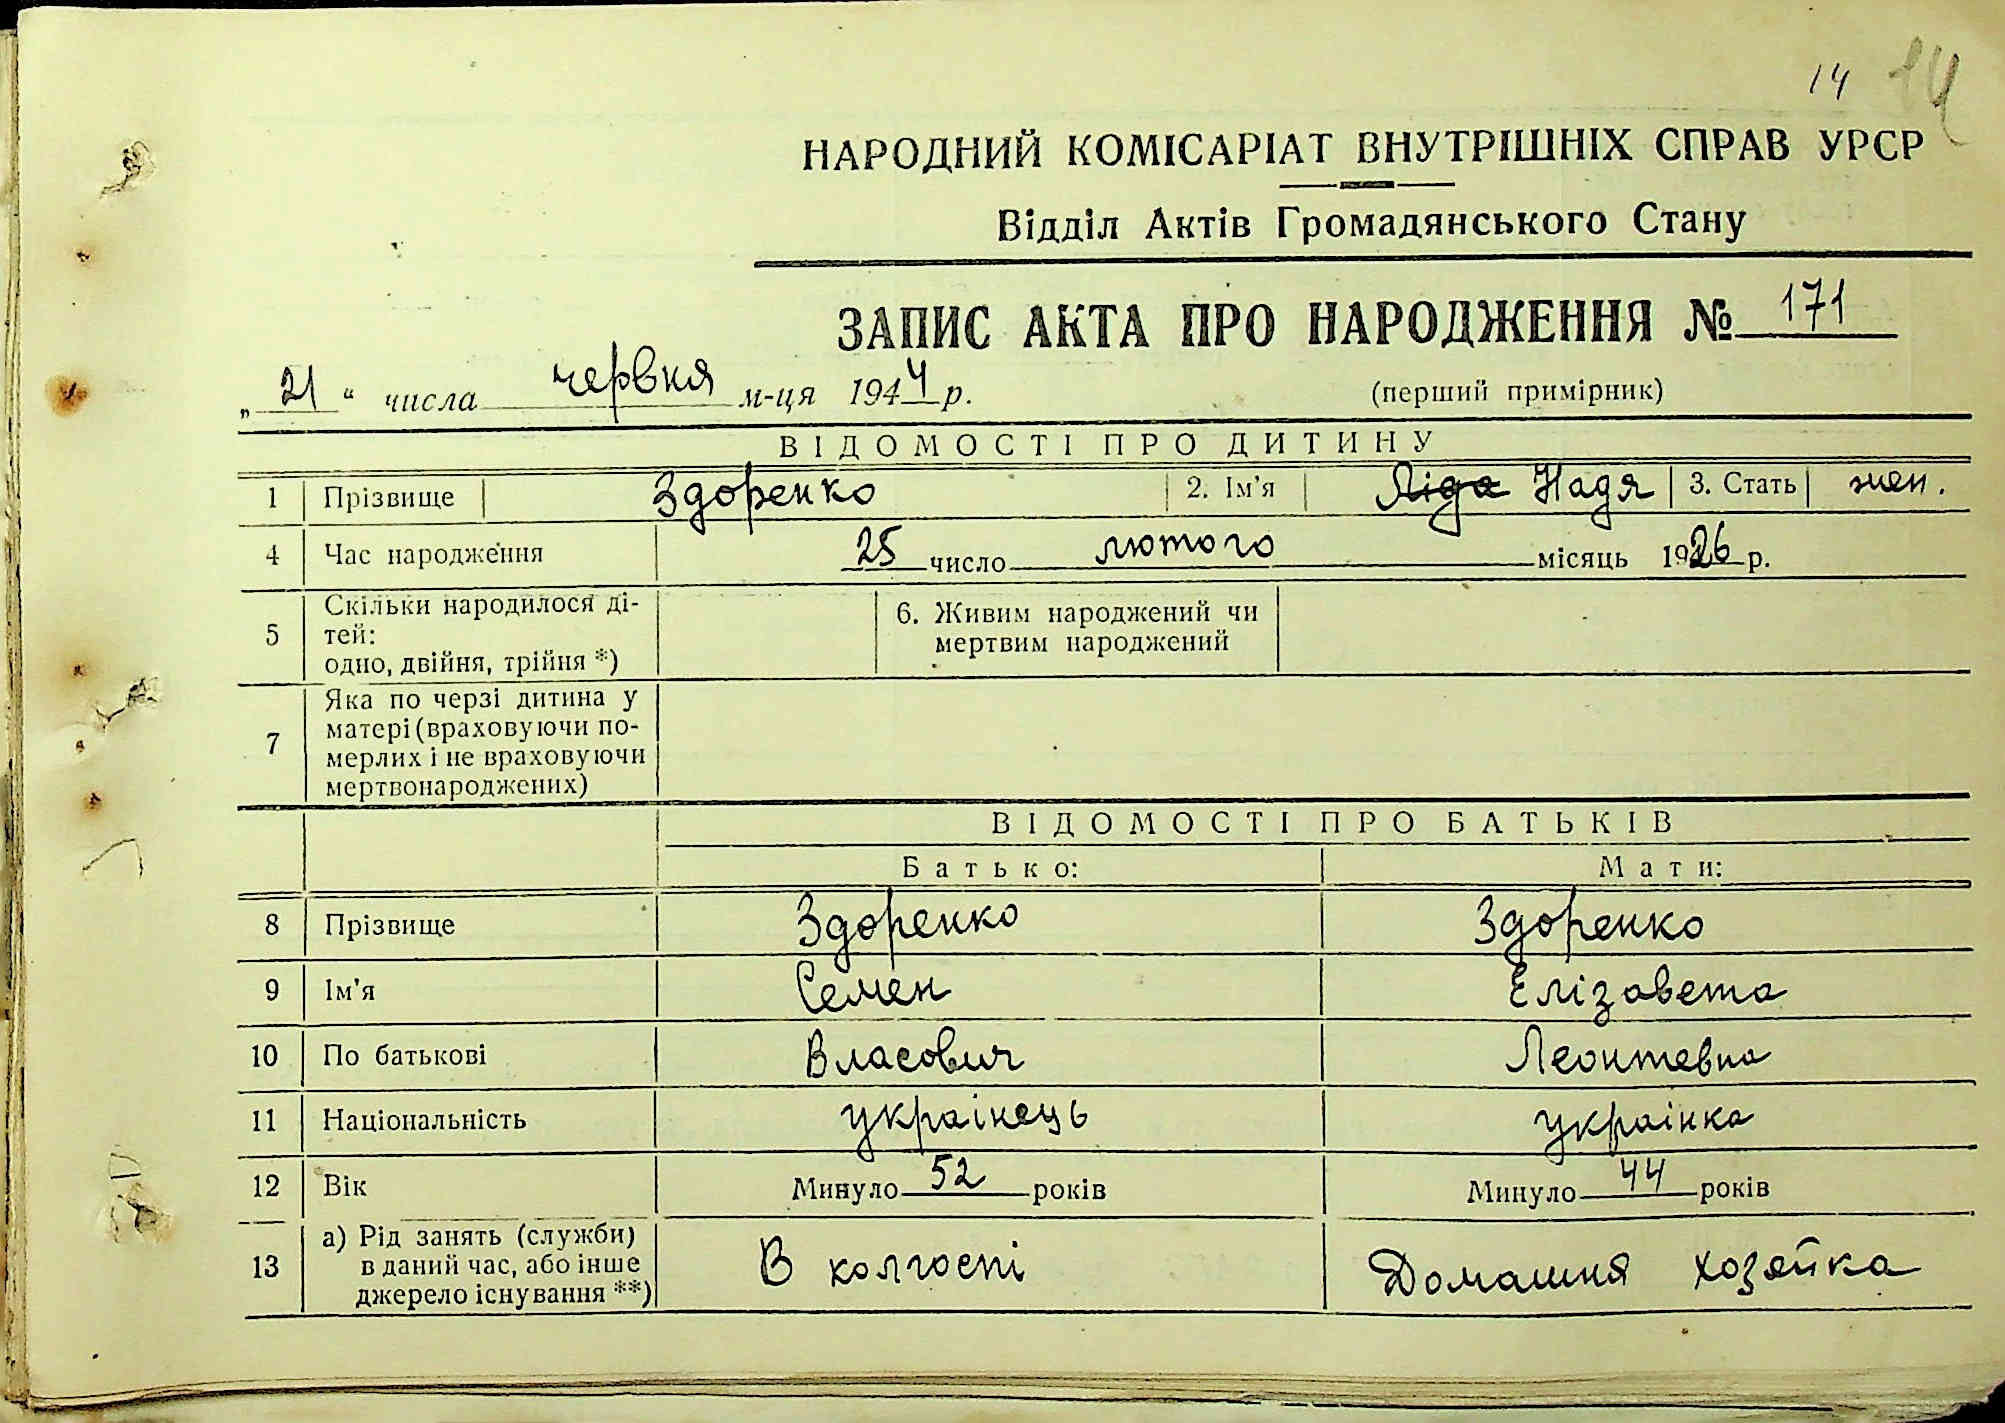 14 14
НАРОДНИЙ КОМІСАРІАТ ВНУТРІШНІХ СПРАВ УРСР
Відділ Актів Громадянського Стану
ЗАПИС АКТА ПРО НАРОДЖЕННЯ № 171
„ 21 “ числа червня м-ця 1944 р. (перший примірник)
ВІДОМОСТІ ПРО ДИТИНУ
1 Прізвище Здоренко 2. Ім'я Ліда Надя 3. Стать жен.
4 Час народження 25 число лютого місяць 1926 р.
5 Скільки народилося ді-
тей:
одно, двійня, трійня *)
6. Живим народжений чи
мертвим народжений
7 Яка по черзі дитина у
матері (враховуючи по-
мерлих і не враховуючи
мертвонароджених)
ВІДОМОСТІ ПРО БАТЬКІВ
Батько: Мати:
8 Прізвище Здоренко Здоренко
9 Ім'я Семен Елізавета
10 По батькові Власович Леонтевна
11 Національність українець українка
12 Вік Минуло 52 років Минуло 44 років
13 а) Рід занять (служби)
в даний час, або інше
джерело існування **)
В колгоспі Домашня хозяйка